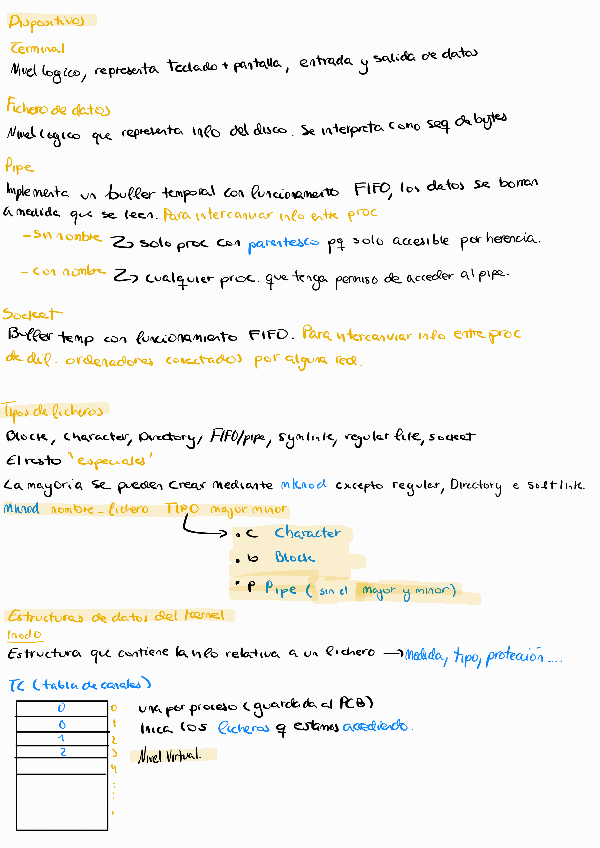 Dispositivos
Terminal
Nivel logico, representa Teclado + pantalla, entrada y salida de datos
Fichero de datos
Nivel logico que representa info del disco. Se interpreta como seq de bytes
Pipe
Implementa un buffer temporal con funcionamento FIFO, los datos se borran
a medida que se leen. Para intercanviar info entre proc
- sin nombre → solo proc con parentesco pq solo accesible por herencia.
- con nombre → cualquier proc. que tenga permiso de acceder al pipe.
Socket
Buffer temp con funcionamento FIFO. Para intercanviar info entre proc
de dif. ordenadores conectados por alguna red.
Tipos de ficheros
Block, character, Directory, FIFO/pipe, symlink, regular file, socket
El resto 'especiales'
La mayoria se pueden crear mediante mknod excepto regular, Directory e softlink.
Mknod nombre_fichero TIPO mayor minor
• c Character
• b Block
• p Pipe (sin el mayor y minor)
Estructuras de datos del kernel
Inodo
Estructura que contiene la info relativa a un fichero → medida, tipo, protección ....
TC (tabla de canales)
0 0 una por proceso (guardada al PCB)
0 1 Inica los ficheros q estamos accediendo.
1 2
2 3 Nivel Virtual.
4